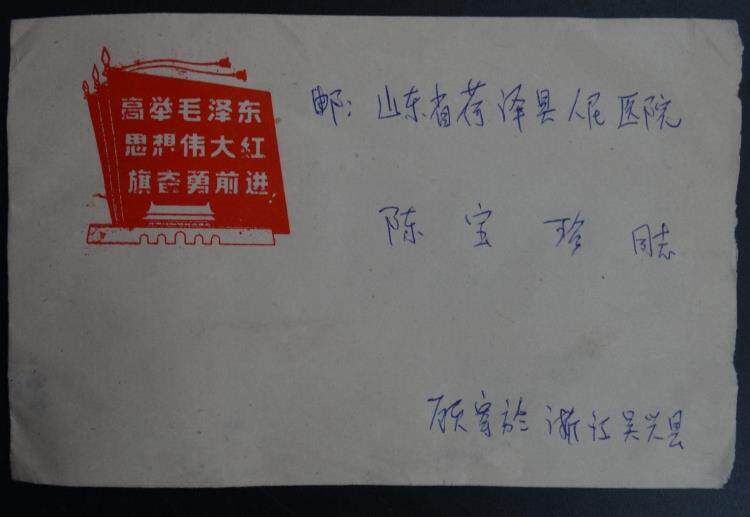 高举毛泽东
思想伟大红
旗奋勇前进
邮：山东省荷泽县人民医院
陈宝珍 同志
顾寄於 浙江吴兴县